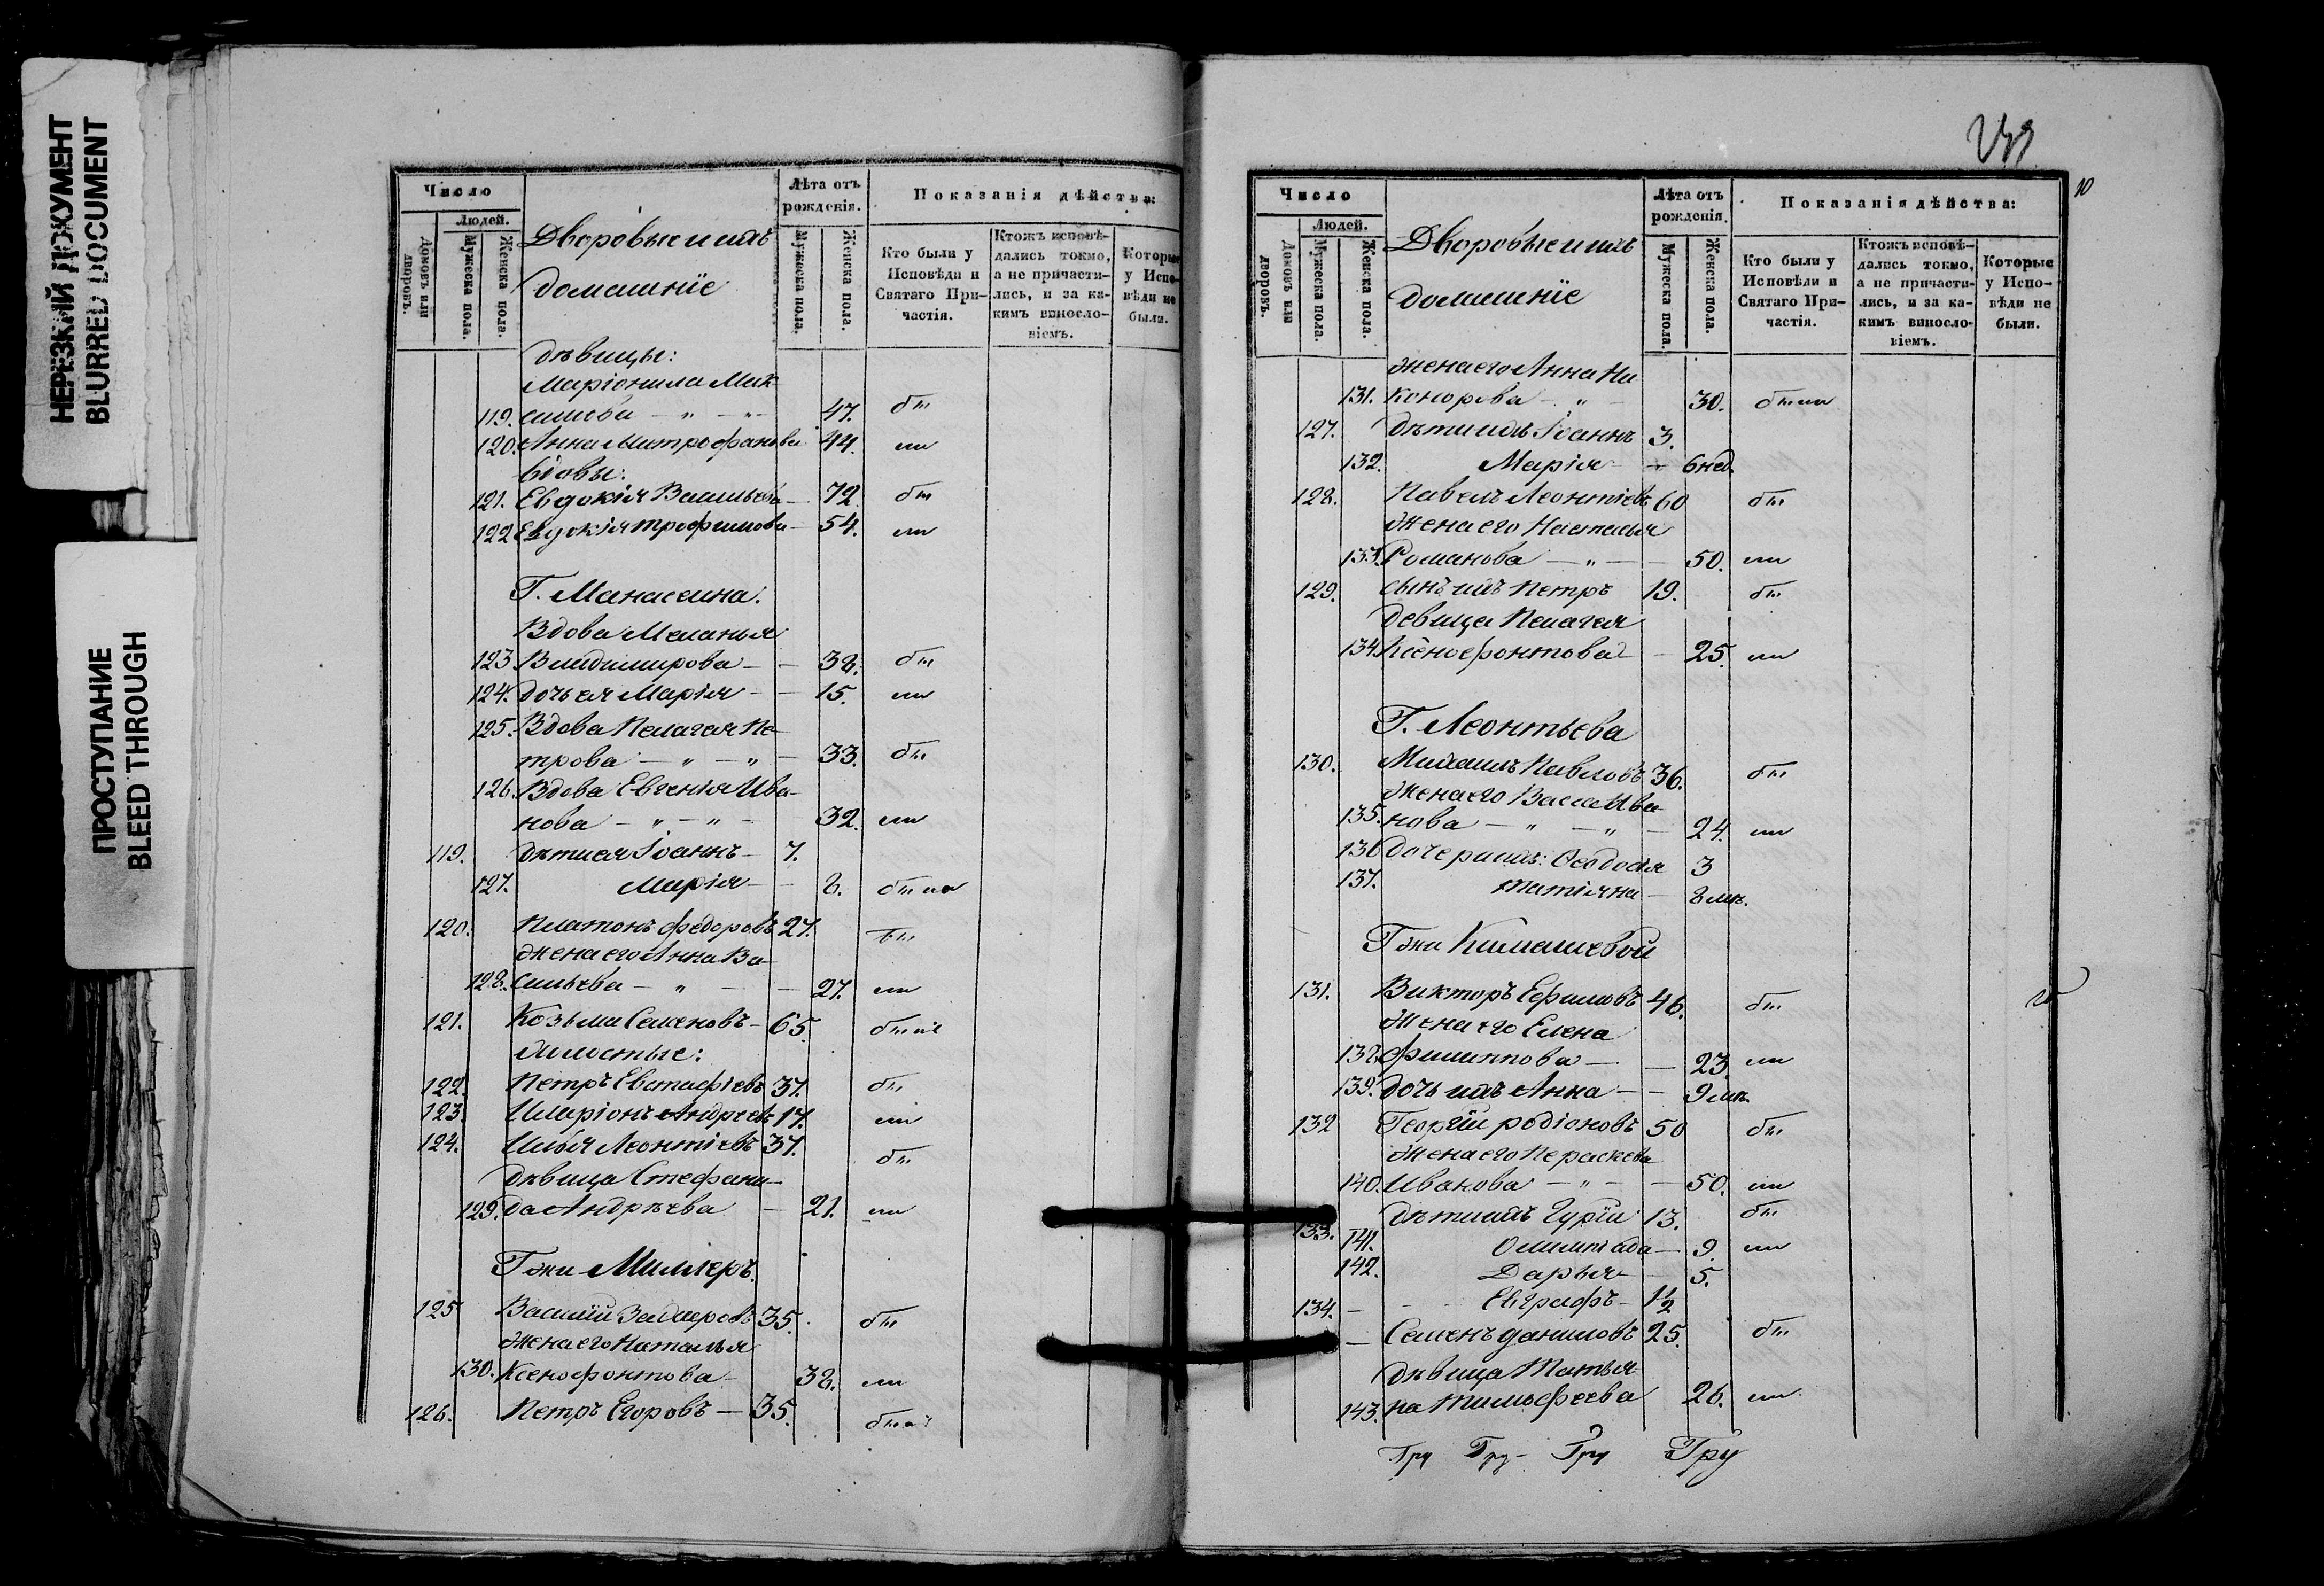 НЕРЕЗКИЙ ДОКУМЕНТ
BLURRED DOCUMENT
ПРОСТУПАНИЕ
BLEED THROUGH
Число
Людей.
Домовъ или дворовъ.
Мужеска пола.
Женска пола.
Дворовые и ихъ
домашнїе
Лѣта отъ рожденія.
Мужеска пола.
Женска пола.
Показанія дѣйства:
Кто были у Исповѣди и Святаго Причастія.
Ктожъ исповѣдались токмо, а не причастились, и за какимъ винословіемъ.
Которые у Исповѣди не были.
дѣвицы:
Маріонила Мак
119. симова — „ — „ — 47. бы
120. Анна Митрофанова 44. ли
вдовы:
121. Евдокія Васильева — 72. бы
122 Евдокія трофимова — 54. ли
Г. Манасеина.
Вдова Меланья
123 Владимирова — — 38. бы
124. дочь ея Марія — — 15. ли
125. Вдова Пелагея Пе-
трова — „ — „ — 33. бы
126. Вдова Евгенія Ива-
нова — „ — „ — 32. ли
119. дѣти ея Іоаннъ — 7.
127. Марія — — 8. были
120. Платонъ федоровъ 27. бы
жена его Анна Ва-
128. сильева — „ — — 27. ли
121. Козьма Семеновъ — 65. былъ
Холостые:
122. Петръ Евстафіевъ 37. бы
123. Иларіонъ Андреевъ 17. ли
124. Илья Леонтіевъ 37. бы
дѣвица Стефани-
129. да Андрѣева — 21. ли
Гжи Миллеръ.
125 Василїй 35. бы
жена его Наталья
130. Ксенофонтова — 38. ли
126. Петръ Егоровъ — 35. былъ
10
Число
Людей.
Домовъ или дворовъ.
Мужеска пола.
Женска пола.
Дворовые и ихъ
домашнїе
Лѣта отъ рожденія.
Мужеска пола.
Женска пола.
Показанія дѣйства:
Кто были у Исповѣди и Святаго Причастія.
Ктожъ исповѣдались токмо, а не причастились, и за какимъ винословіемъ.
Которые у Исповѣди не были.
жена его Анна Ни
131. конорова — „ — 30. были
127. дѣти ихъ Іоаннъ 3.
132. Марія — 6 нед.
128. Павелъ Леонтіевъ 60 бы
жена его Настасья
133. Романова — „ — — 50. ли
129. сынъ ихъ Петръ 19. бы
девица Пелагея
134 Ксенофонтова — 25. ли
Г. Леонтьева
130. Михаилъ Павловъ 36. бы
жена его Васса Ива
135. нова — „ — „ — 24. ли
136 дочери ихъ: Ѳеодосія 3
137. татіяна — 8 мѣ.
Гжи Кимашевой
131. Викторъ Ефимовъ 46. бы
Жена его Елена
138. филиппова — — 23 ли
139. дочь ихъ Анна — — 9 мѣ.
132 Георгїй родіоновъ 50 бы
жена его Пераскева
140. Иванова — „ — — 50. ли
133. дѣти ихъ Гурїй 13. бы
141. Олимпіада — 9. ли
142. Дарья — 5.
134. — Евграфъ — 1 1/2
— Семенъ даниловъ 25. бы
дѣвица Татья-
143. на тимофеева 26. ли
Гру Гру- Гру Гру